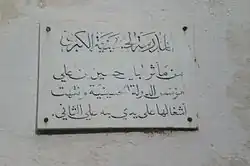 المدرسة الحسينية الكبرى
من مآثر باي حسين بن علي
مؤسس الدولة الحسينية وانتهت
أشغالها على يدي علي الثاني